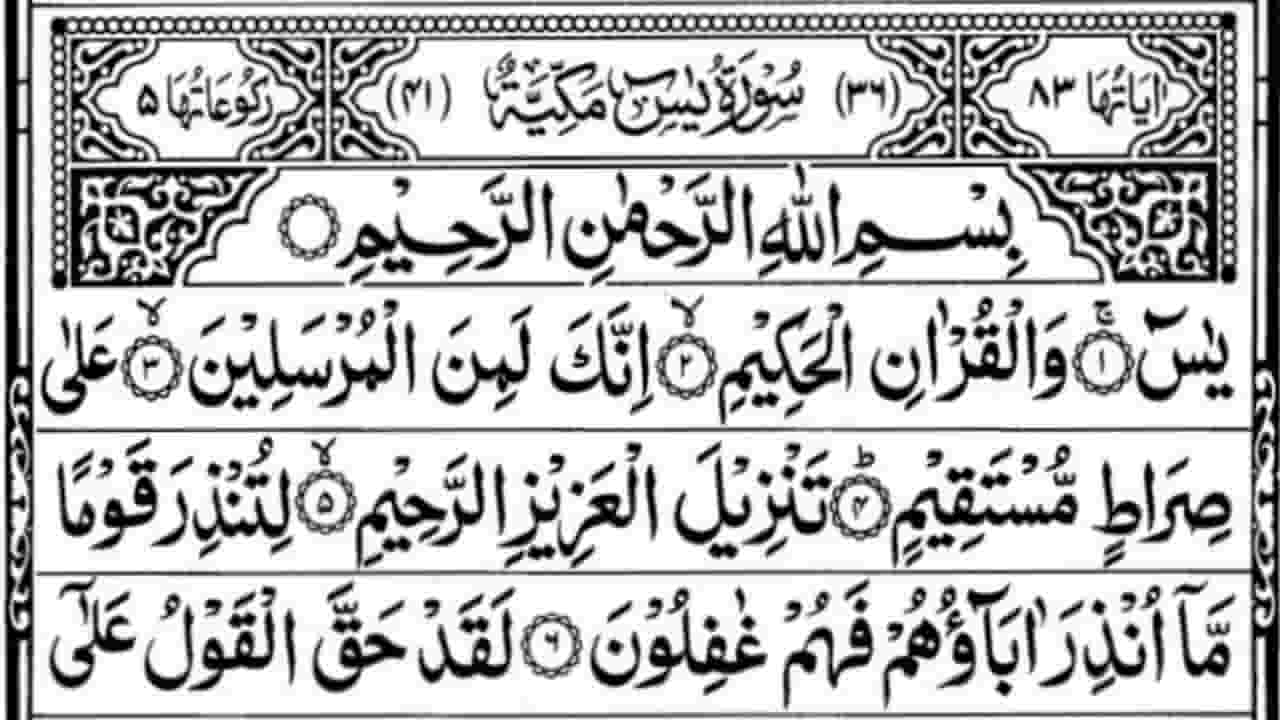 اٰيَاتُهَا ٨٣ (٣٦) سُوْرَةُ يٰسٓ مَكِّيَّةٌ (٤١) رَكُوْعَاتُهَا ٥
بِسْمِ اللّٰهِ الرَّحْمٰنِ الرَّحِيْمِ
يٰسٓ ۚ‏﴿١﴾ وَالْقُرْاٰنِ الْحَكِيْمِ ۙ‏﴿٢﴾ اِنَّكَ لَمِنَ الْمُرْسَلِيْنَ ۙ‏﴿٣﴾ عَلٰى
صِرَاطٍ مُّسْتَقِيْمٍ ؕ‏﴿۴﴾ تَنْزِيْلَ الْعَزِيْزِ الرَّحِيْمِ ۙ‏﴿۵﴾ لِتُنْذِرَ قَوْمًا
مَّاۤ اُنْذِرَ اٰبَآؤُهُمْ فَهُمْ غٰفِلُوْنَ ‏﴿۶﴾ لَقَدْ حَقَّ الْقَوْلُ عَلٰٓى